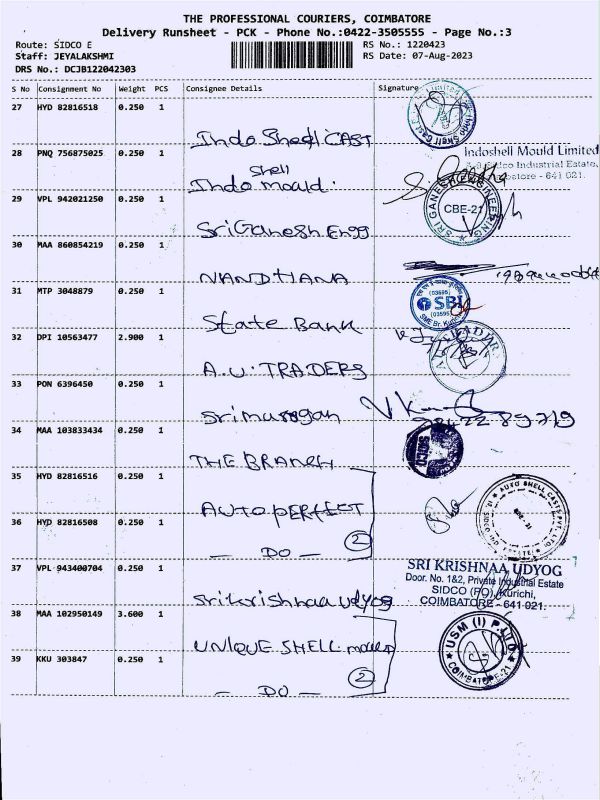 THE PROFESSIONAL COURIERS, COIMBATORE
Delivery Runsheet - PCK - Phone No.:0422-3505555 - Page No.:3
Route: SIDCO E RS No.: 1220423
Staff: JEYALAKSHMI RS Date: 07-Aug-2023
DRS No.: DCJB122042303
S No Consignment No Weight PCS Consignee Details Signature
27 HYD 82816518 0.250 1
Indo Shell CAST
28 PNQ 756875025 0.250 1
Indoshell Mould Limited
Industrial Estate,
641 021.
Indo shell mould.
29 VPL 942021250 0.250 1
SRI GANESH ENGINEERING
CBE-21
Sri Ganesh Engg
30 MAA 860854219 0.250 1
NANDHANA
31 MTP 3048879 0.250 1
SBI
State Bank
32 DPI 10563477 2.900 1
A.U. TRADERS
33 PON 6396450 0.250 1
Sri murogan
34 MAA 103833434 0.250 1
THE BRANCH
35 HYD 82816516 0.250 1
AUTO SHELL CASTS PVT. LTD.
AUTO PERFECT
36 HYD 82816508 0.250 1
- DO - 2
37 VPL 943400704 0.250 1
SRI KRISHNAA UDYOG
Door. No. 1&2, Private Industrial Estate
SIDCO (PO), Kurichi,
COIMBATORE - 641 021.
Sri krishnaa udyog
38 MAA 102950149 3.600 1
USM (I) P.LTD
COIMBATORE-21
UNIQUE SHELL mould
39 KKU 303847 0.250 1
- DO - 2